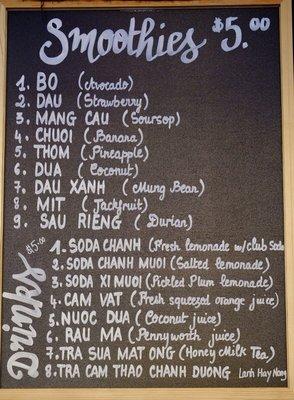 Smoothies $5.00
1. BO (Avocado)
2. DAU (Strawberry)
3. MANG CAU (Soursop)
4. CHUOI (Banana)
5. THOM (Pineapple)
6. DUA (Coconut)
7. DAU XANH (Mung Bean)
8. MIT (Jackfruit)
9. SAU RIENG (Durian)
Drinks $5.00
1. SODA CHANH (Fresh lemonade w/club Soda
2. SODA CHANH MUOI (Salted lemonade)
3. SODA XI MUOI (Pickled Plum lemonade)
4. CAM VAT (Fresh squeezed orange juice)
5. NUOC DUA (Coconut juice)
6. RAU MA (Pennyworth juice)
7. TRA SUA MAT ONG (Honey Milk Tea)
8. TRA CAM THAO CHANH DUONG Lanh Hay Nong